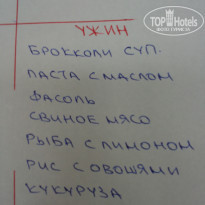 TOP Hotels
УЖИН
БРОККОЛИ СУП.
ПАСТА С МАСЛОМ
ФАСОЛЬ
СВИНОЕ МЯСО
РЫБА С ЛИМОНОМ
РИС С ОВОШЯМИ
КУКУРУЗА